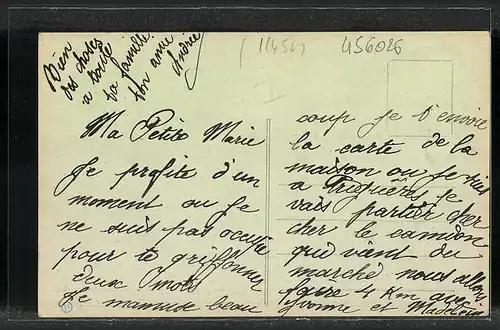 Bien
des choses
a toute
ta famille
ton amie
Andrée
(11454)
456026
Ma Petite Marie
Je profite d'un
moment ou je
ne suis pas occupée
pour te griffonner
deux mots
Je m'amuse beau
coup je t'envoie
la carte de la
maison ou je suis
a Triguères je
vais partir cher
cher le camion
qui vient du
marché nous allons
faire 4 Km avec
Yvonne et Madeleine